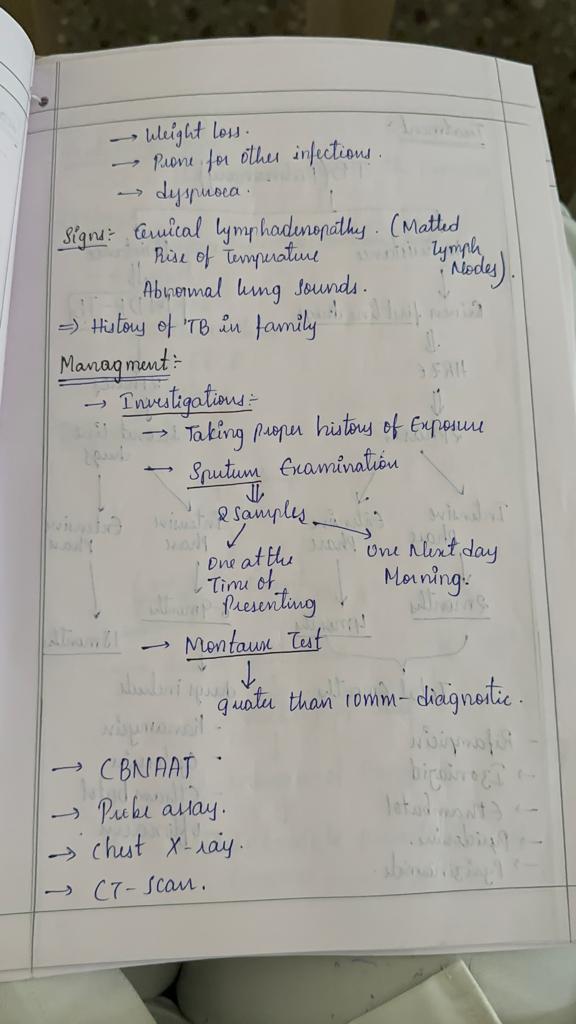 → Weight loss.
→ Prone for other infections.
→ dyspnoea.
Signs:- Cervical lymphadenopathy. (Matted Lymph Nodes).
Rise of Temperature
Abnormal lung sounds.
⇒ History of TB in family
Managment:-
→ Investigations:-
→ Taking proper history of Exposure
→ Sputum Examination
⇓
2 samples
One at the Time of Presenting
One Next day Morning.
→ Montaux Test
↓
greater than 10mm - diagnostic.
→ CBNAAT
→ Probe assay.
→ Chest X-ray.
→ CT-Scan.